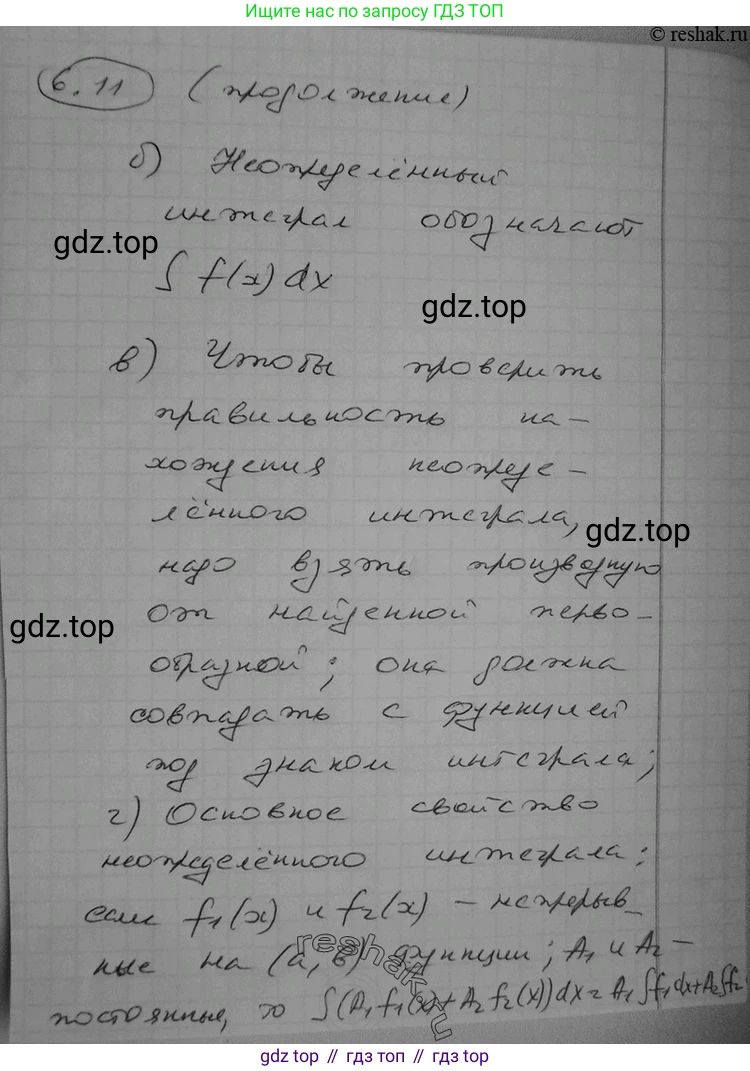 Ищите нас по запросу ГДЗ ТОП
© reshak.ru
6.11 (продолжение)
б) Неопределённый
интеграл обозначают
gdz.top
∫ f(x) dx
gdz.top
в) Чтобы проверить
правильность на-
хождения неопреде-
лённого интеграла,
gdz.top
надо взять производную
от найденной перво-
gdz.top
образной; она должна
совпадать с функцией
под знаком интеграла;
г) Основное свойство
неопределённого интеграла:
если f₁(x) и f₂(x) – непрерыв-
ные на (а, в) функции; A₁ и A₂ –
reshak.ru
постоянные, то ∫(A₁f₁(x)+A₂f₂(x))dx = A₁∫f₁dx+A₂∫f₂
gdz top // гдз топ // gdz top